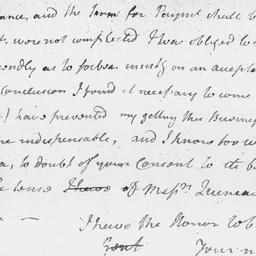 and the Term for Paymt shall
were not completed I was obliged to
as to forbear insisting on an
Conclusion I found it necessary to come
I have prevented my getting this Business
indispensable, and I know too w
to doubt of your Consent to its b
House of Messrs
I have the Honor to b
Your